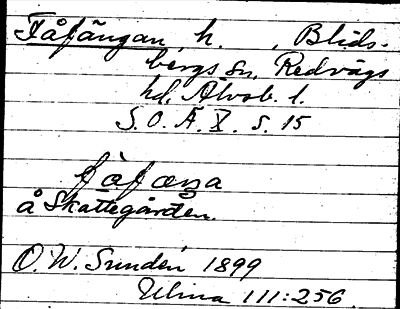 Fåfängan, h. , Blids-
bergs sn, Redvägs
hd, Älvsb. l.
S.O.Ä. X. s. 15
fàfæŋa
å Skattegården.
O.W. Sundén 1899
Ulma 111:256.